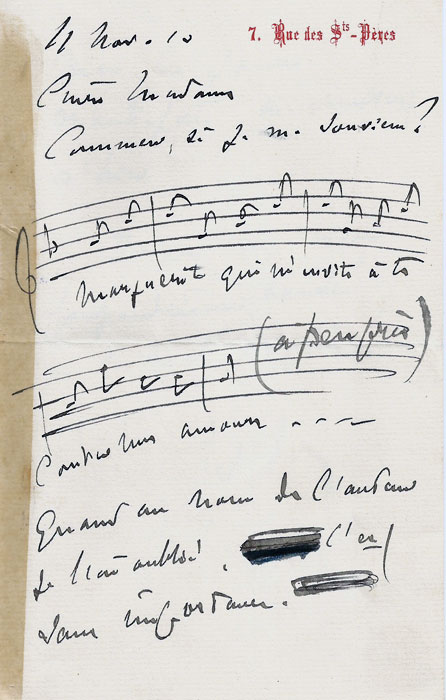 7. Rue des Sts-Pères
11 Nov. 10
Chère Madame
Comment, si je me souviens?
Marguerite qui m'invite à te
(à peu près)
Conter mes amours ----
Quand au nom de l'auteur
je l'ai oublié. C'est
sans importance.